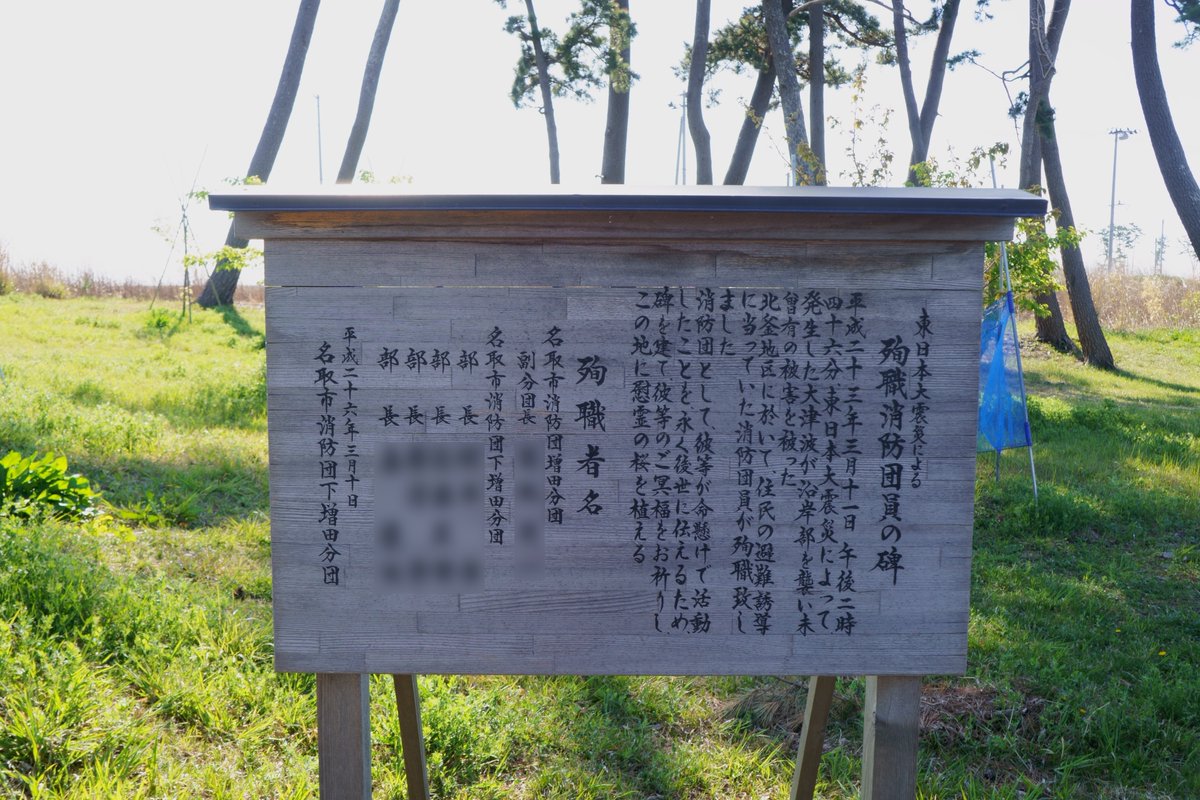 東日本大震災による
殉職消防団員の碑
平成二十三年三月十一日 午後二時
四十六分東日本大震災によって
発生した大津波が沿岸部を襲い未
曾有の被害を被った
北釜地区に於いて、住民の避難誘導
に当っていた消防団員が殉職致し
ました
消防団として、彼等が命懸けで活動
したことを、永く後世に伝えるため、
碑を建て彼等のご冥福をお祈りし、
この地に慰霊の桜を植える
殉職者名
名取市消防団増田分団
副分団長
名取市消防団下増田分団
部長
部長
部長
部長
平成二十六年三月十日
名取市消防団下増田分団